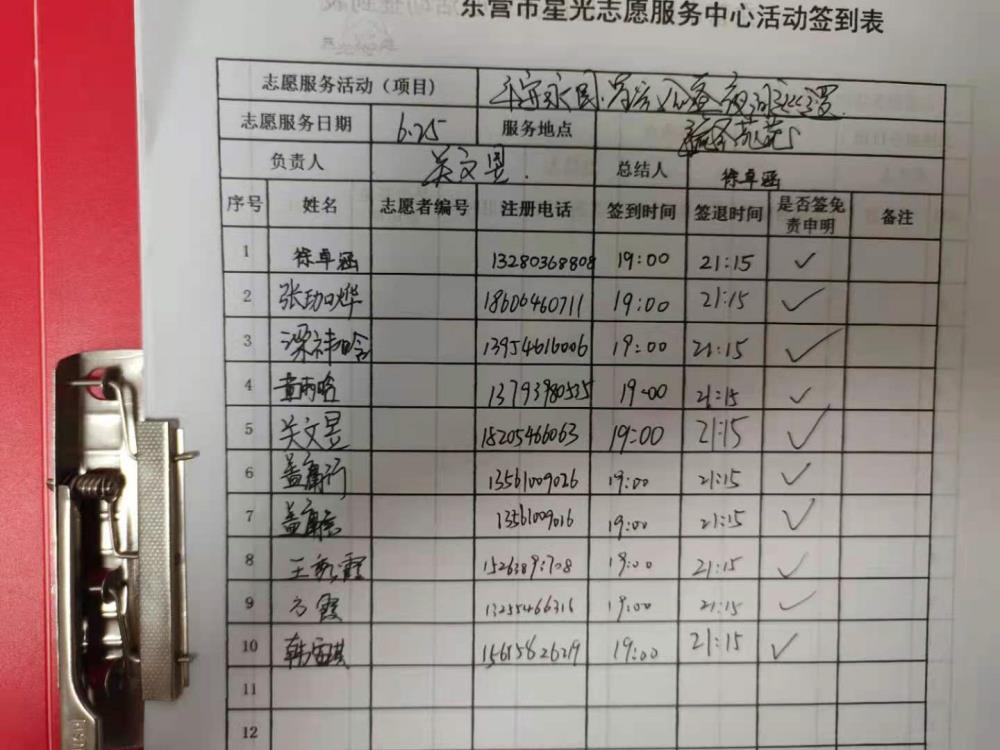 东营市星光志愿服务中心活动签到表
志愿服务活动（项目）
志愿服务日期 6.25 服务地点
负责人 关文昱 总结人 徐卓涵
序号 姓名 志愿者编号 注册电话 签到时间 签退时间 是否签免责申明 备注
1 徐卓涵 13280368808 19:00 21:15 ✓
2 张劲烨 18606460711 19:00 21:15 ✓
3 梁祎晗 13954616006 19:00 21:15 ✓
4 13793980535 19:00 21:15 ✓
5 关文昱 18205466063 19:00 21:15 ✓
6 13561009026 19:00 21:15 ✓
7 13561009016 19:00 21:15 ✓
8 19:00 21:15 ✓
9 方霞 13255466316 19:00 21:15 ✓
10 15615826219 19:00 21:15 ✓
11
12